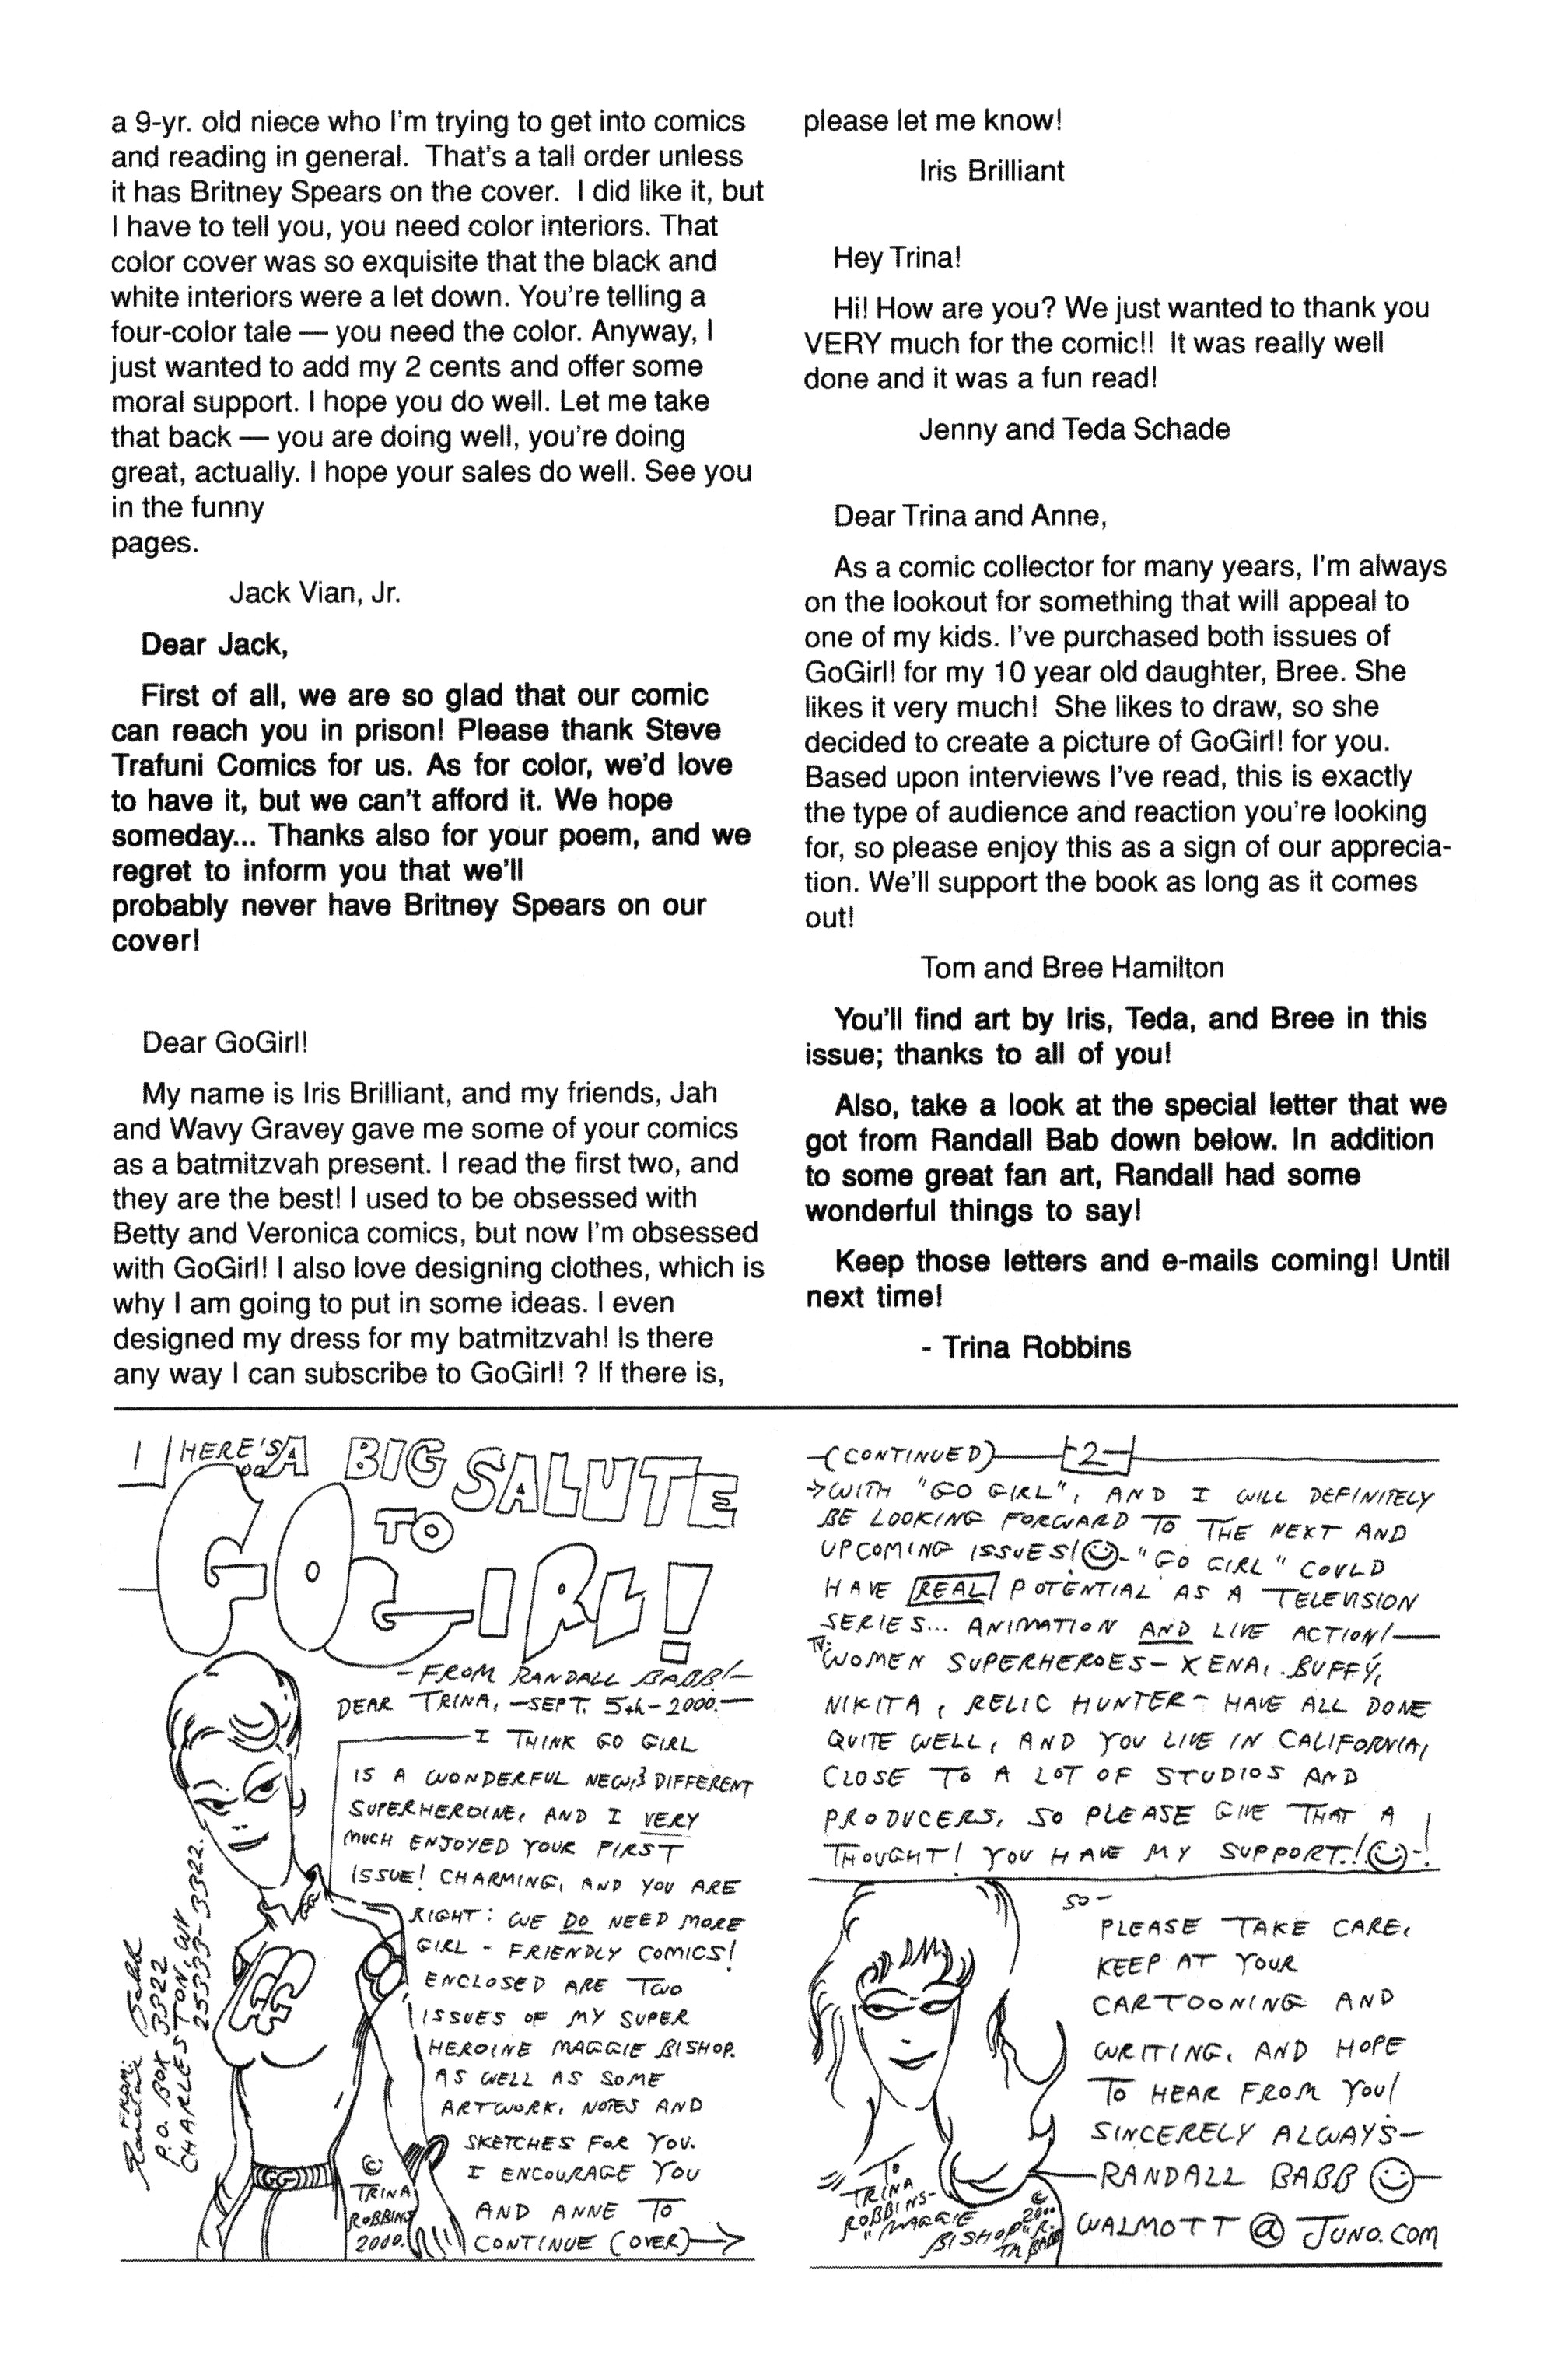 a 9-yr. old niece who I'm trying to get into comics
and reading in general.  That's a tall order unless
it has Britney Spears on the cover.  I did like it, but
I have to tell you, you need color interiors. That
color cover was so exquisite that the black and
white interiors were a let down. You're telling a
four-color tale — you need the color. Anyway, I
just wanted to add my 2 cents and offer some
moral support. I hope you do well. Let me take
that back — you are doing well, you're doing
great, actually. I hope your sales do well. See you
in the funny
pages.
Jack Vian, Jr.
Dear Jack,
First of all, we are so glad that our comic
can reach you in prison! Please thank Steve
Trafuni Comics for us. As for color, we'd love
to have it, but we can't afford it. We hope
someday... Thanks also for your poem, and we
regret to inform you that we'll
probably never have Britney Spears on our
cover!
Dear GoGirl!
My name is Iris Brilliant, and my friends, Jah
and Wavy Gravey gave me some of your comics
as a batmitzvah present. I read the first two, and
they are the best! I used to be obsessed with
Betty and Veronica comics, but now I'm obsessed
with GoGirl! I also love designing clothes, which is
why I am going to put in some ideas. I even
designed my dress for my batmitzvah! Is there
any way I can subscribe to GoGirl! ? If there is,
please let me know!
Iris Brilliant
Hey Trina!
Hi! How are you? We just wanted to thank you
VERY much for the comic!!  It was really well
done and it was a fun read!
Jenny and Teda Schade
Dear Trina and Anne,
As a comic collector for many years, I'm always
on the lookout for something that will appeal to
one of my kids. I've purchased both issues of
GoGirl! for my 10 year old daughter, Bree. She
likes it very much!  She likes to draw, so she
decided to create a picture of GoGirl! for you.
Based upon interviews I've read, this is exactly
the type of audience and reaction you're looking
for, so please enjoy this as a sign of our apprecia-
tion. We'll support the book as long as it comes
out!
Tom and Bree Hamilton
You'll find art by Iris, Teda, and Bree in this
issue; thanks to all of you!
Also, take a look at the special letter that we
got from Randall Bab down below. In addition
to some great fan art, Randall had some
wonderful things to say!
Keep those letters and e-mails coming! Until
next time!
- Trina Robbins
1 HERE'S A BIG SALUTE
TO
GO GIRL!
- FROM RANDALL BABB! -
DEAR TRINA, - SEPT. 5th - 2000. -
I THINK GO GIRL
IS A WONDERFUL NEW & DIFFERENT
SUPERHEROINE, AND I VERY
MUCH ENJOYED YOUR FIRST
ISSUE! CHARMING, AND YOU ARE
RIGHT: WE DO NEED MORE
GIRL - FRIENDLY COMICS!
ENCLOSED ARE TWO
ISSUES OF MY SUPER
HEROINE MAGGIE BISHOP.
AS WELL AS SOME
ARTWORK, NOTES AND
SKETCHES FOR YOU.
I ENCOURAGE YOU
AND ANNE TO
CONTINUE (OVER) →
GG
GG
© TRINA
ROBBINS
2000.
FROM:
Randall Babb
P.O. BOX 3322
CHARLESTON, WV
25333-3322.
- (CONTINUED) - 2 -
→ WITH "GO GIRL", AND I WILL DEFINITELY
BE LOOKING FORWARD TO THE NEXT AND
UPCOMING ISSUES! - "GO GIRL" COULD
HAVE REAL POTENTIAL AS A TELEVISION
SERIES... ANIMATION AND LIVE ACTION! -
TV: WOMEN SUPERHEROES - XENA, BUFFY,
NIKITA, RELIC HUNTER - HAVE ALL DONE
QUITE WELL, AND YOU LIVE IN CALIFORNIA,
CLOSE TO A LOT OF STUDIOS AND
PRODUCERS, SO PLEASE GIVE THAT A
THOUGHT! YOU HAVE MY SUPPORT!! - !
SO -
PLEASE TAKE CARE,
KEEP AT YOUR
CARTOONING AND
WRITING, AND HOPE
TO HEAR FROM YOU!
SINCERELY ALWAYS -
- RANDALL BABB -
WALMOTT @ JUNO.COM
TO
TRINA
ROBBINS -
"MAGGIE
BISHOP"
© 2000